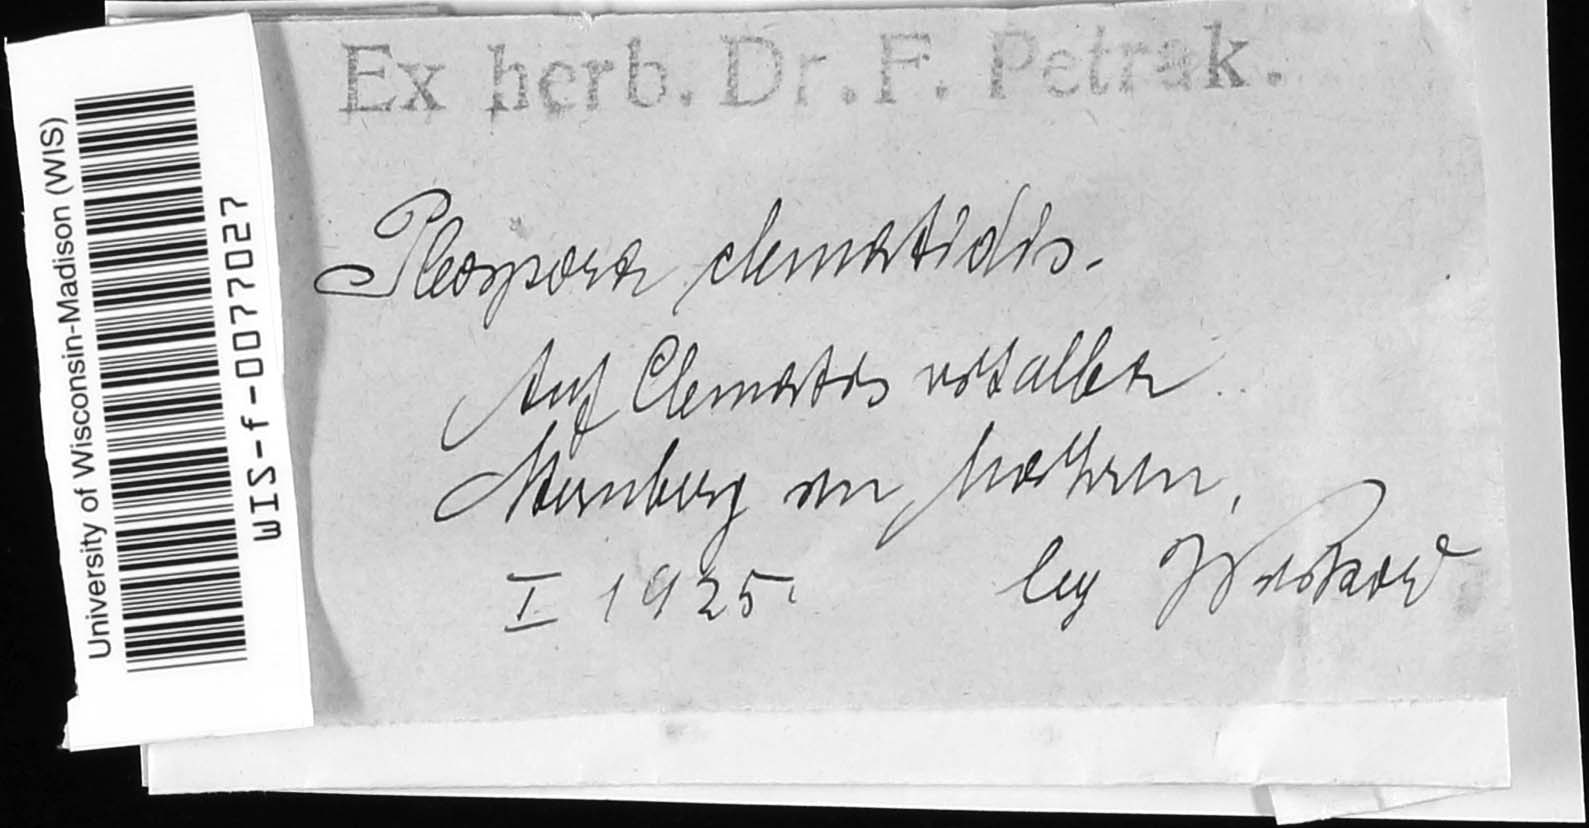 University of Wisconsin-Madison (WIS)
WIS-f-0077027
Ex herb. Dr. F. Petrak.
Pleospora clematidis.
Auf Clematis vitalba
Sternberg in Mähren,
I 1925. leg